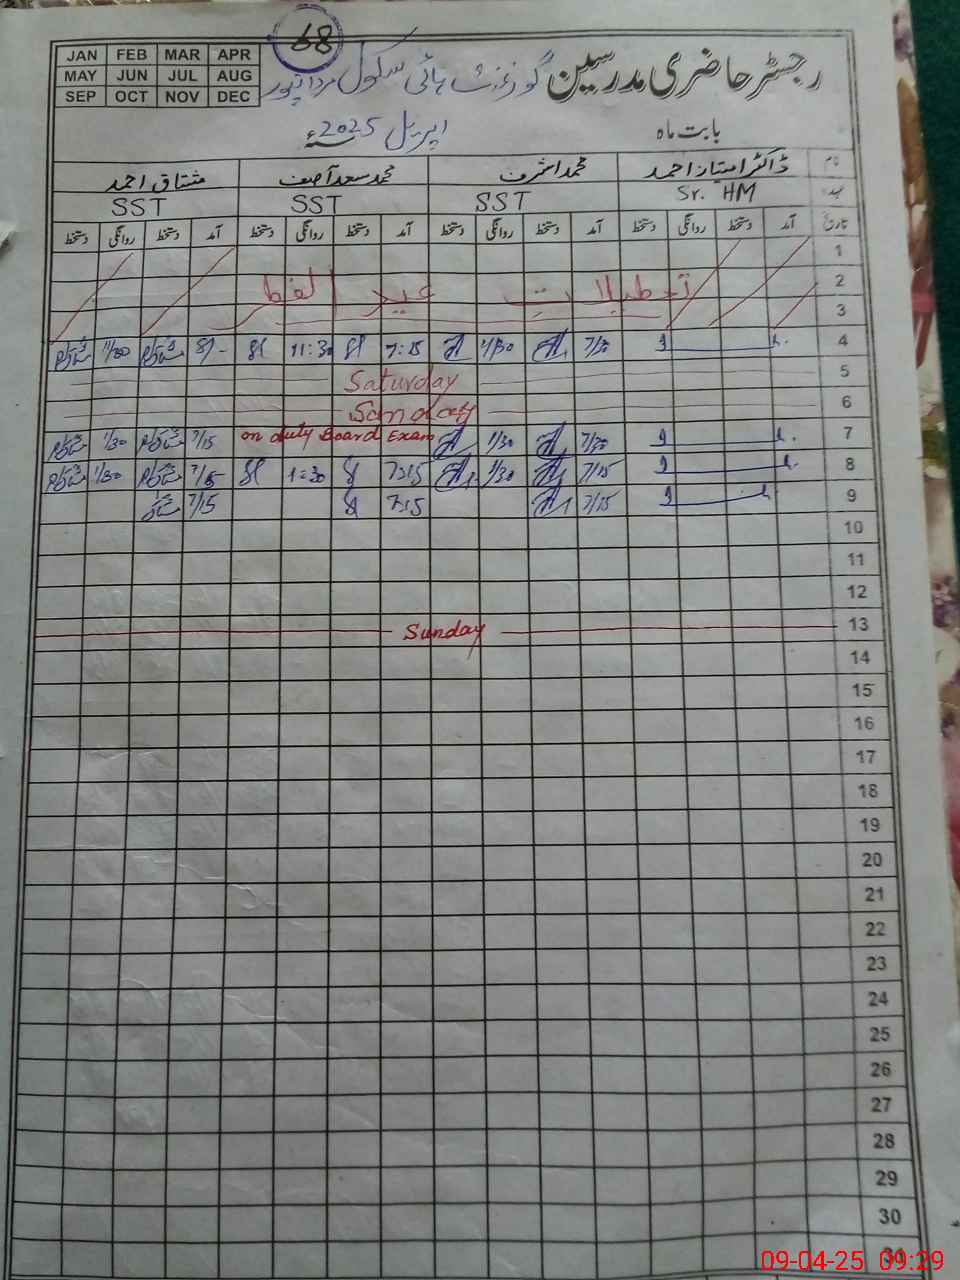 68
JAN FEB MAR APR
MAY JUN JUL AUG
SEP OCT NOV DEC
رجسٹر حاضری مدرسین گورنمنٹ ہائی سکول
بابت ماہ اپریل 2025ء
نام ڈاکٹر امتیاز احمد محمد اشرف محمد سعد آصف مشتاق احمد
عہدہ Sr. HM SST SST SST
تاریخ آمد دستخط روانگی دستخط آمد دستخط روانگی دستخط آمد دستخط روانگی دستخط آمد دستخط روانگی دستخط
1
2 تعطیلاتِ عید الفطر
3
4 7/30 1/30 7:15 11:30 11/30
5 Saturday
6 Sunday
7 7/30 1/30 on duty Board Exam 7/15 1/30
8 7/15 1/30 7:15 1:30 7/15 1/30
9 7/15 7:15 7/15
10
11
12
13 Sunday
14
15
16
17
18
19
20
21
22
23
24
25
26
27
28
29
30
31
09-04-25 09:29